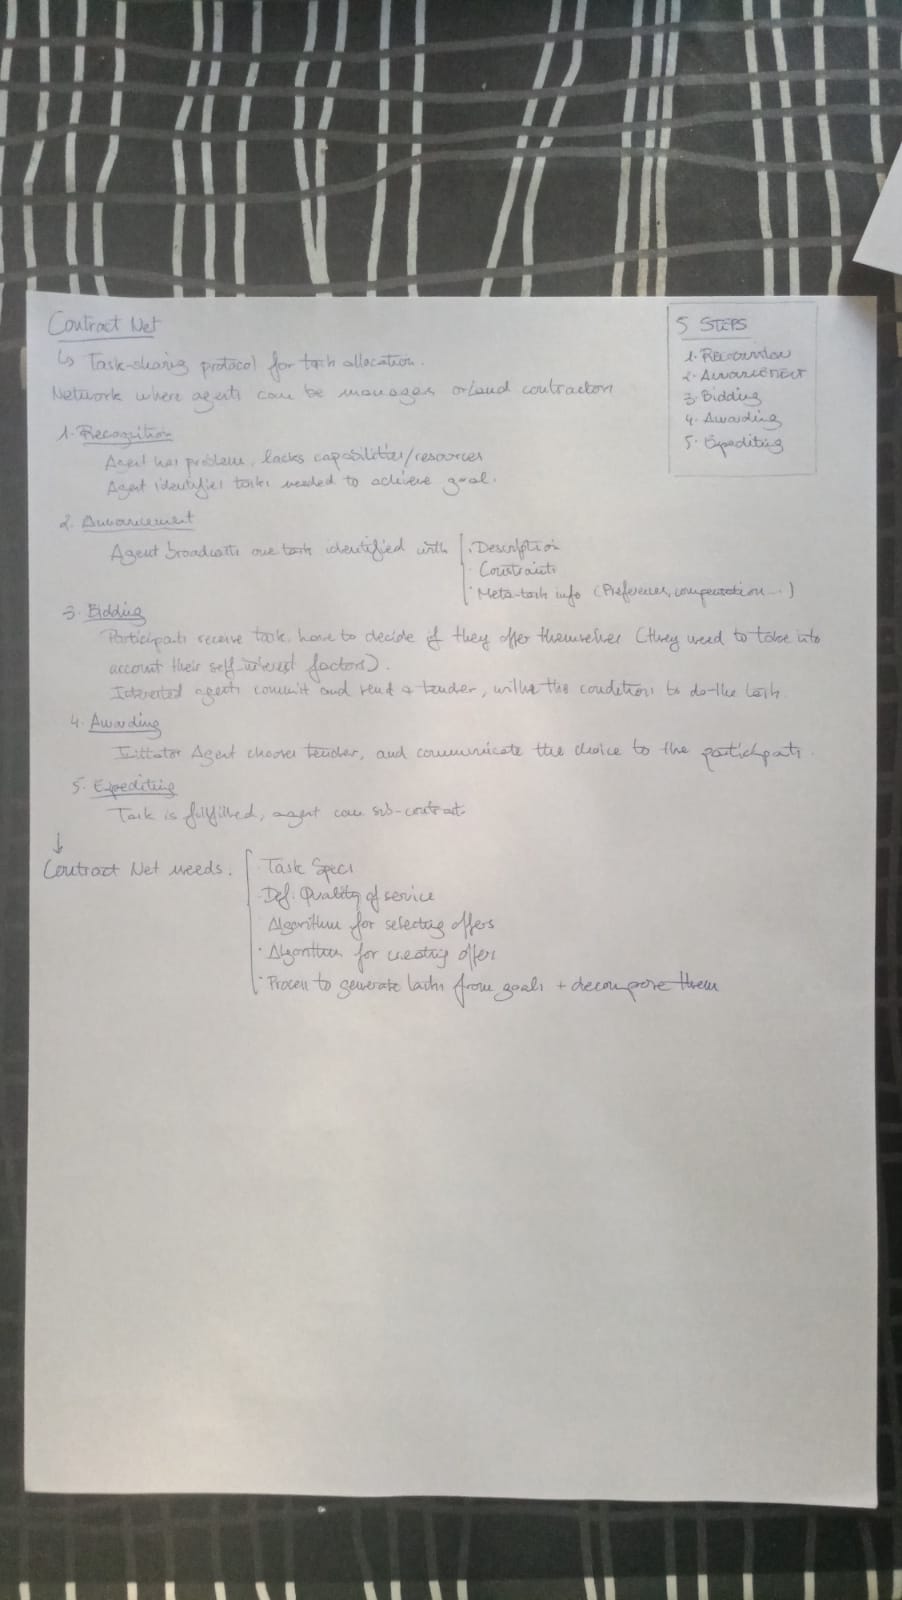 Contract Net
↳ Task-sharing protocol for task allocation.
Network where agents can be managers or/and contractors
5 STEPS
1. Recognition
2. Announcement
3. Bidding
4. Awarding
5. Expediting
1. Recognition
Agent has problem, lacks capabilities/resources
Agent identifies tasks needed to achieve goal.
2. Announcement
Agent broadcasts one task identified with
· Description
· Constraints
· Meta-task info (Preferences, computation...)
3. Bidding
Participants receive task, have to decide if they offer themselves (they need to take into
account their self-interest factors).
Interested agents commit and send a tender, the conditions to do the task.
4. Awarding
Initiator Agent chooses tender, and communicate the choice to the participants.
5. Expediting
Task is fulfilled, agent can sub-contract.
↓
Contract Net needs:
· Task Specs
· Def. Quality of service
· Algorithm for selecting offers
· Algorithm for creating offers
· Process to generate tasks from goals + decompose them